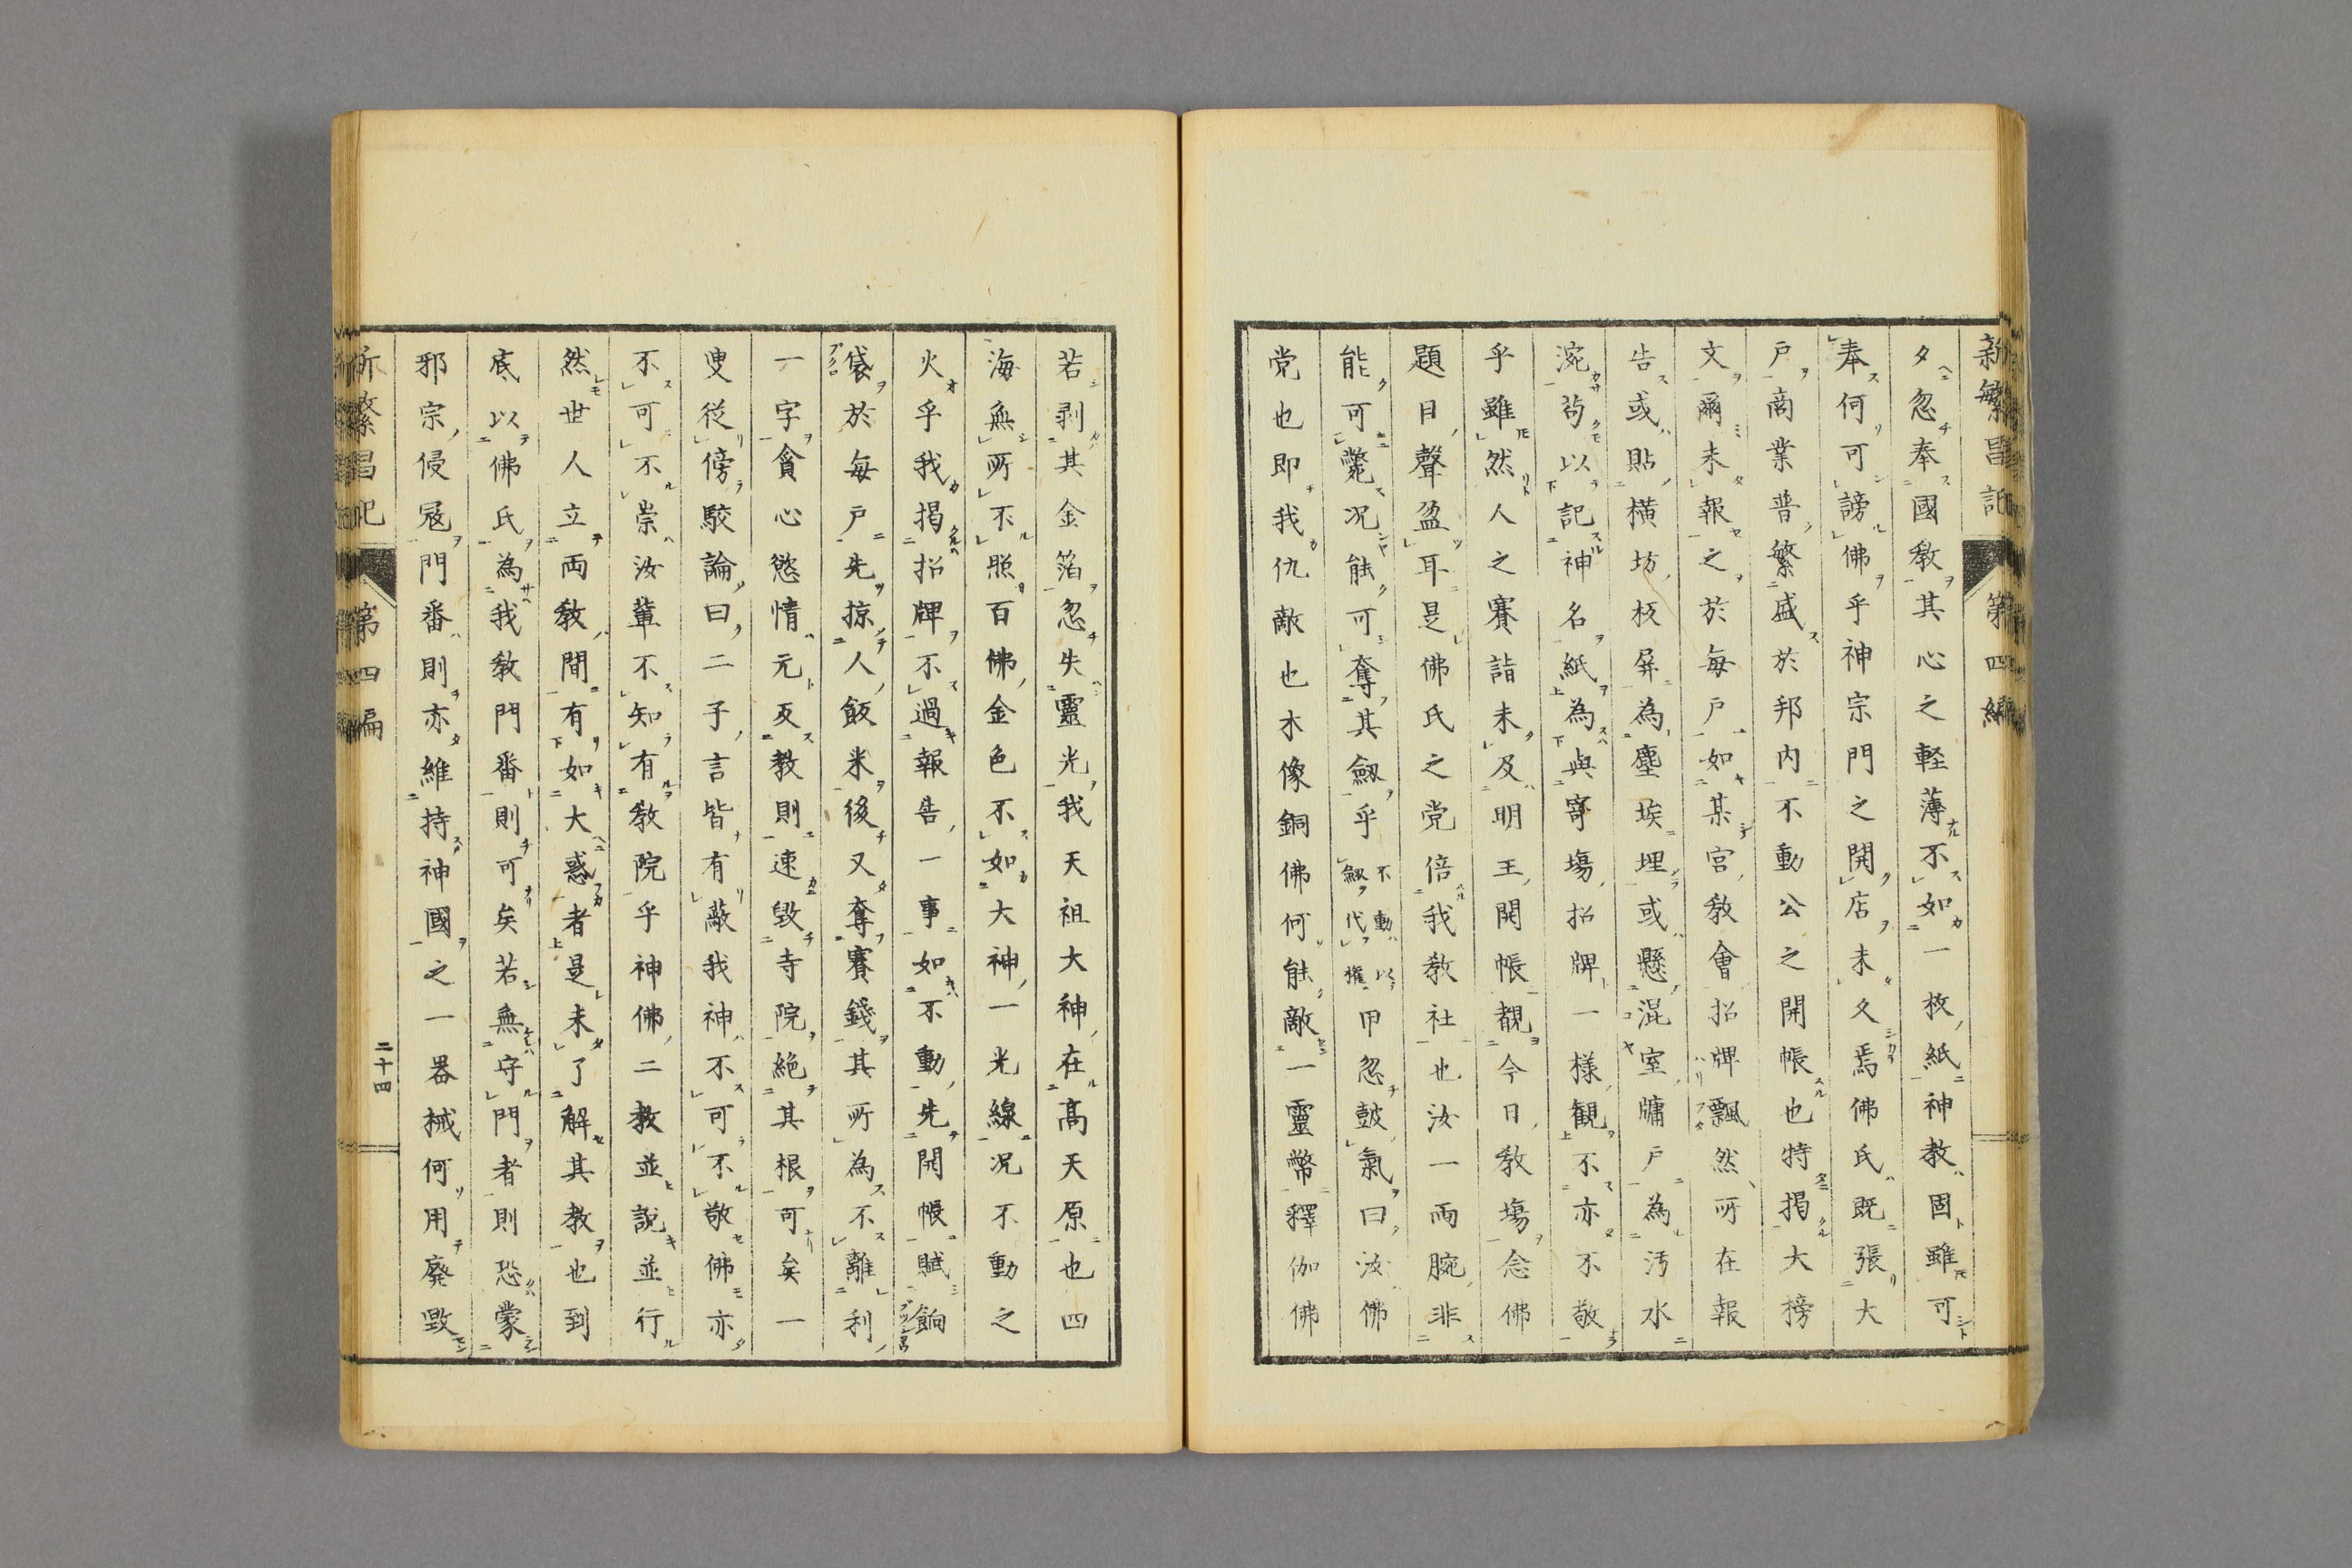 新繁昌記 第四編
夕忽奉國敎其心之軽薄不如一枚紙神教固雖可
奉何可謗佛乎神宗門之開店未久焉佛氏既張大
戸商業普繁盛於邦内不動公之開帳也特揭大榜
文爾未報之於每戸如某宮敎會招牌飄然所在報
告或貼横坊板屏為塵埃埋或懸混室牗戸為汚水
涴苟以記神名紙為與寄塲招牌一樣観不亦不敬
乎雖然人之賽詣未及明王開帳覩今日敎塲念佛
題目聲盈耳是佛氏之党倍我敎社也汝一両腕非
能可斃况能可奪其劔乎不動以劔代權甲忽鼓氣曰汝佛
党也即我仇敵也木像銅佛何能敵一靈幣釋伽佛
若剥其金箔忽失靈光我天祖大神在高天原也四
海無所不照百佛金色不如大神一光線况不動之
火乎我揭招牌不過報告一事如不動先開帳賦餉
袋於每戸先掠人飯米後又奪賽錢其所為不離利
一字貪心慾情元反教則速毀寺院絶其根可矣一
叟從傍駮論曰二子言皆有敵我神不可不敬佛亦
不可不崇汝軰不知有敎院乎神佛二教並說並行
然世人立両敎間有如大惑者是未了解其教也到
底以佛氏為我敎門番則可矣若無守門者則恐蒙
邪宗侵冦門番則亦維持神國之一器械何用廢毀
新繁昌記 第四編
二十四